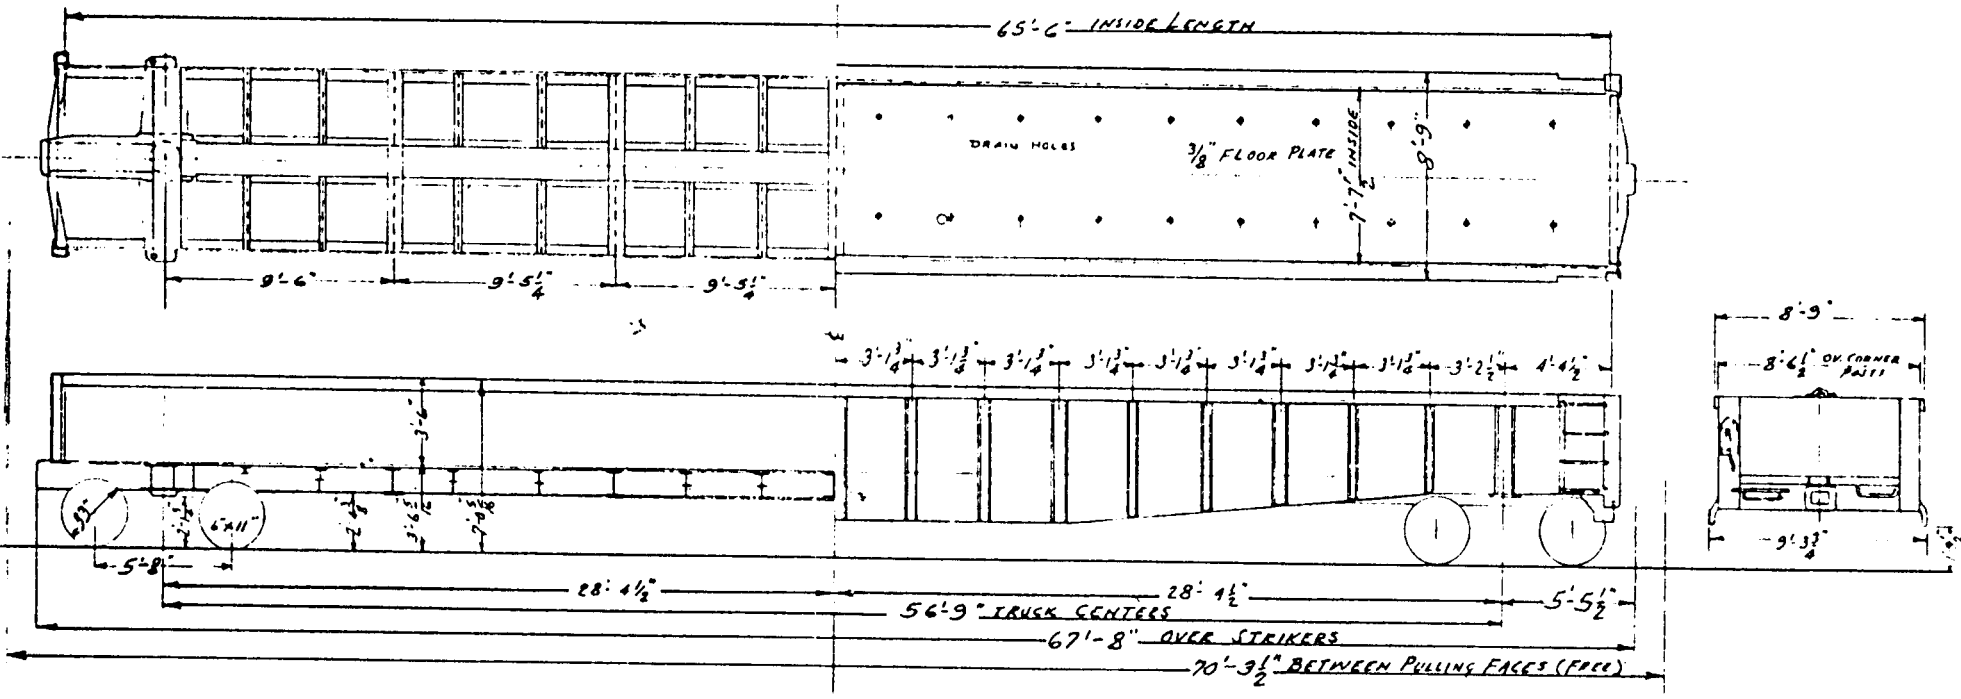 65'-6" INSIDE LENGTH
DRAIN HOLES
3/8" FLOOR PLATE
7'-7 1/2" INSIDE
8'-9"
9'-6"
9'-5 1/4"
9'-5 1/4"
3'-1 3/4"
3'-1 3/4"
3'-1 3/4"
3'-1 3/4"
3'-1 3/4"
3'-1 3/4"
3'-1 3/4"
3'-1 3/4"
3'-2 1/2"
4'-4 1/2"
8'-9"
8'-6 1/2" OV. CORNER
POSTS
3'-6"
33"
6"x11"
3'-6 5/16"
5'-8"
9'-3 3/4"
28'-4 1/2"
28'-4 1/2"
5'-5 1/2"
56'-9" TRUCK CENTERS
67'-8" OVER STRIKERS
70'-3 1/2" BETWEEN PULLING FACES (FREE)